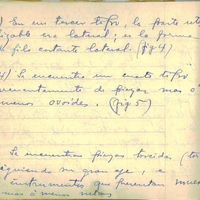 ) En un tercer tipo, la parte uti
lizable era lateral; es la forma
de filo cortante lateral. (fig 4)
4) Se encuentra un cuarto tipo
frecuentemente de piezas mas o
menos ovoides. (fig 5)
Se encuentran piezas torcidas (tor
siguiendo su gran eje, e
instrumentos que presentan mues
mas o menos